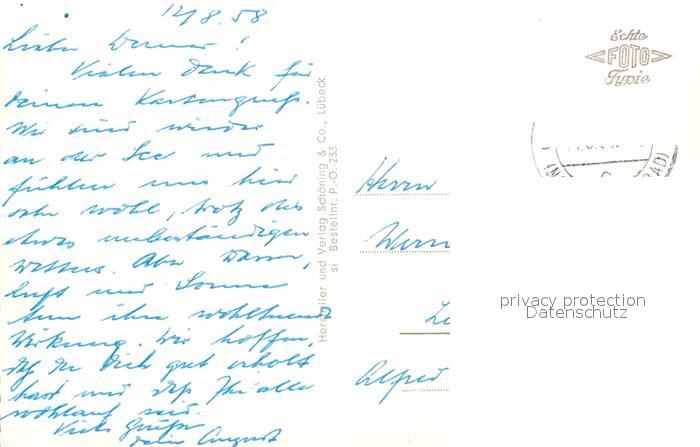 12/8.58
Lieber Werner!
Vielen Dank für
Deinen Kartengruß.
Wir sind wieder
an der See und
fühlen uns hier
sehr wohl, trotz des
etwas unbeständigen
Wetters. Aber Wasser,
Luft und Sonne
tun ihre wohltuende
Wirkung. Wir hoffen,
daß Du Dich gut erholt
hast und daß Ihr alle
wohlauf seid.
Viele Grüße
Dein August
Hersteller und Verlag Schöning & Co., Lübeck
si Bestellnr. P.-O. 233
Echte
FOTO
Typie
Herrn
Wern
Le
Alfred
privacy protection
Datenschutz